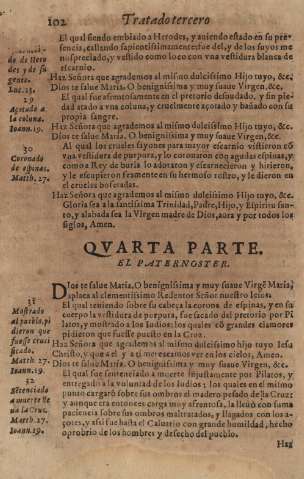 102 Tratado tercero
El qual siendo embiado a Herodes, y auiendo estado en su pre-
sencia, callando sapientissimamente fue del, y de los suyos me
nospreciado, y vestido como loco con vna vestidura blanca de
escarnio.
de Hero
des y de su
gente.
Luc. 23.
Haz Señora que agrademos al mismo dulcissimo Hijo tuyo, &c.
Dios te salue Maria. O benignissima y muy suaue Virgen, &c.
29
Açotado a
la coluna.
Ioann. 19.
El qual fue afrentosamente en el pretorio desnudado, y sin pie-
dad atado a vna coluna, y cruelmente açotado y bañado con su
propia sangre.
Haz Señora que agrademos al mismo dulcissimo Hijo tuyo, &c.
Dios te salue Maria. O benignissima y muy suaue Virgen, &c.
30
Coronado
de espinas.
Matth. 27.
Al qual los crueles sayones para mayor escarnio vistieron cõ
vna vestidura de purpura, y lo coronaron con agudas espinas, y
como a Rey de burla lo adoraron y escarnecieron y hirieron,
y le escupieron feamente en su hermoso rostro, y le dieron en
el crueles bofetadas.
Haz Señora que agrademos al mismo dulcissimo Hijo tuyo, &c.
Gloria sea a la santissima Trinidad, Padre, Hijo, y Espiritu san-
to, y alabada sea la Virgen madre de Dios, aora y por todos los
siglos, Amen.
QVARTA PARTE.
EL PATERNOSTER.
Dios te salue Maria, O benignissima y muy suaue Virgẽ Maria,
aplaca al clementissimo Redentor Señor nuestro Iesus.
31
Mostrado
al pueblo, pi
dieron que
fuesse cruci
ficado.
Matth. 27.
Ioann. 19.
El qual teniendo sobre su cabeça la corona de espinas, y en su
cuerpo la vestidura de purpura, fue sacado del pretorio por Pi
latos, y mostrado a los Iudios: los quales cõ grandes clamores
pidieron que fuesse puesto en la Cruz.
Haz Señora que agrademos al mismo dulcissimo hijo tuyo Iesu
Christo, y que a el y a ti merezcamos ver en los cielos, Amen.
Dios te salue Maria. O benignissima y muy suaue Virgen, &c.
32
Sentenciado
a muerte lle
ua la Cruz.
Matth. 27.
Ioann. 19.
El qual fue sentenciado a muerte injustamente por Pilatos, y
entregado a la voluntad de los Iudios: los quales en el mismo
punto cargarõ sobre sus ombros al madero pesado de la Cruz:
y aunque era entonces carga muy afrentosa, la lleuò con suma
paciencia sobre sus ombros maltratados, y llagados con los a-
çotes, y assi fue hasta el Caluario con grande humildad, hecho
oprobrio de los hombres y desecho del pueblo.
Haz